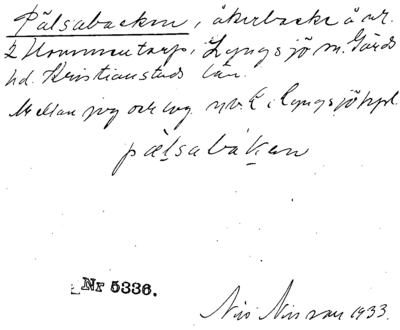 Pälsabacken, åkerbacke å nr.
2 Hommentorp, Lyngsjö sn. Gärds
hd. Kristianstads län.
Mellan jvg och lvg. n.v. Lyngsjö hpl.
pälsabakan
Nr 5336.
Nils Nilsson 1933.